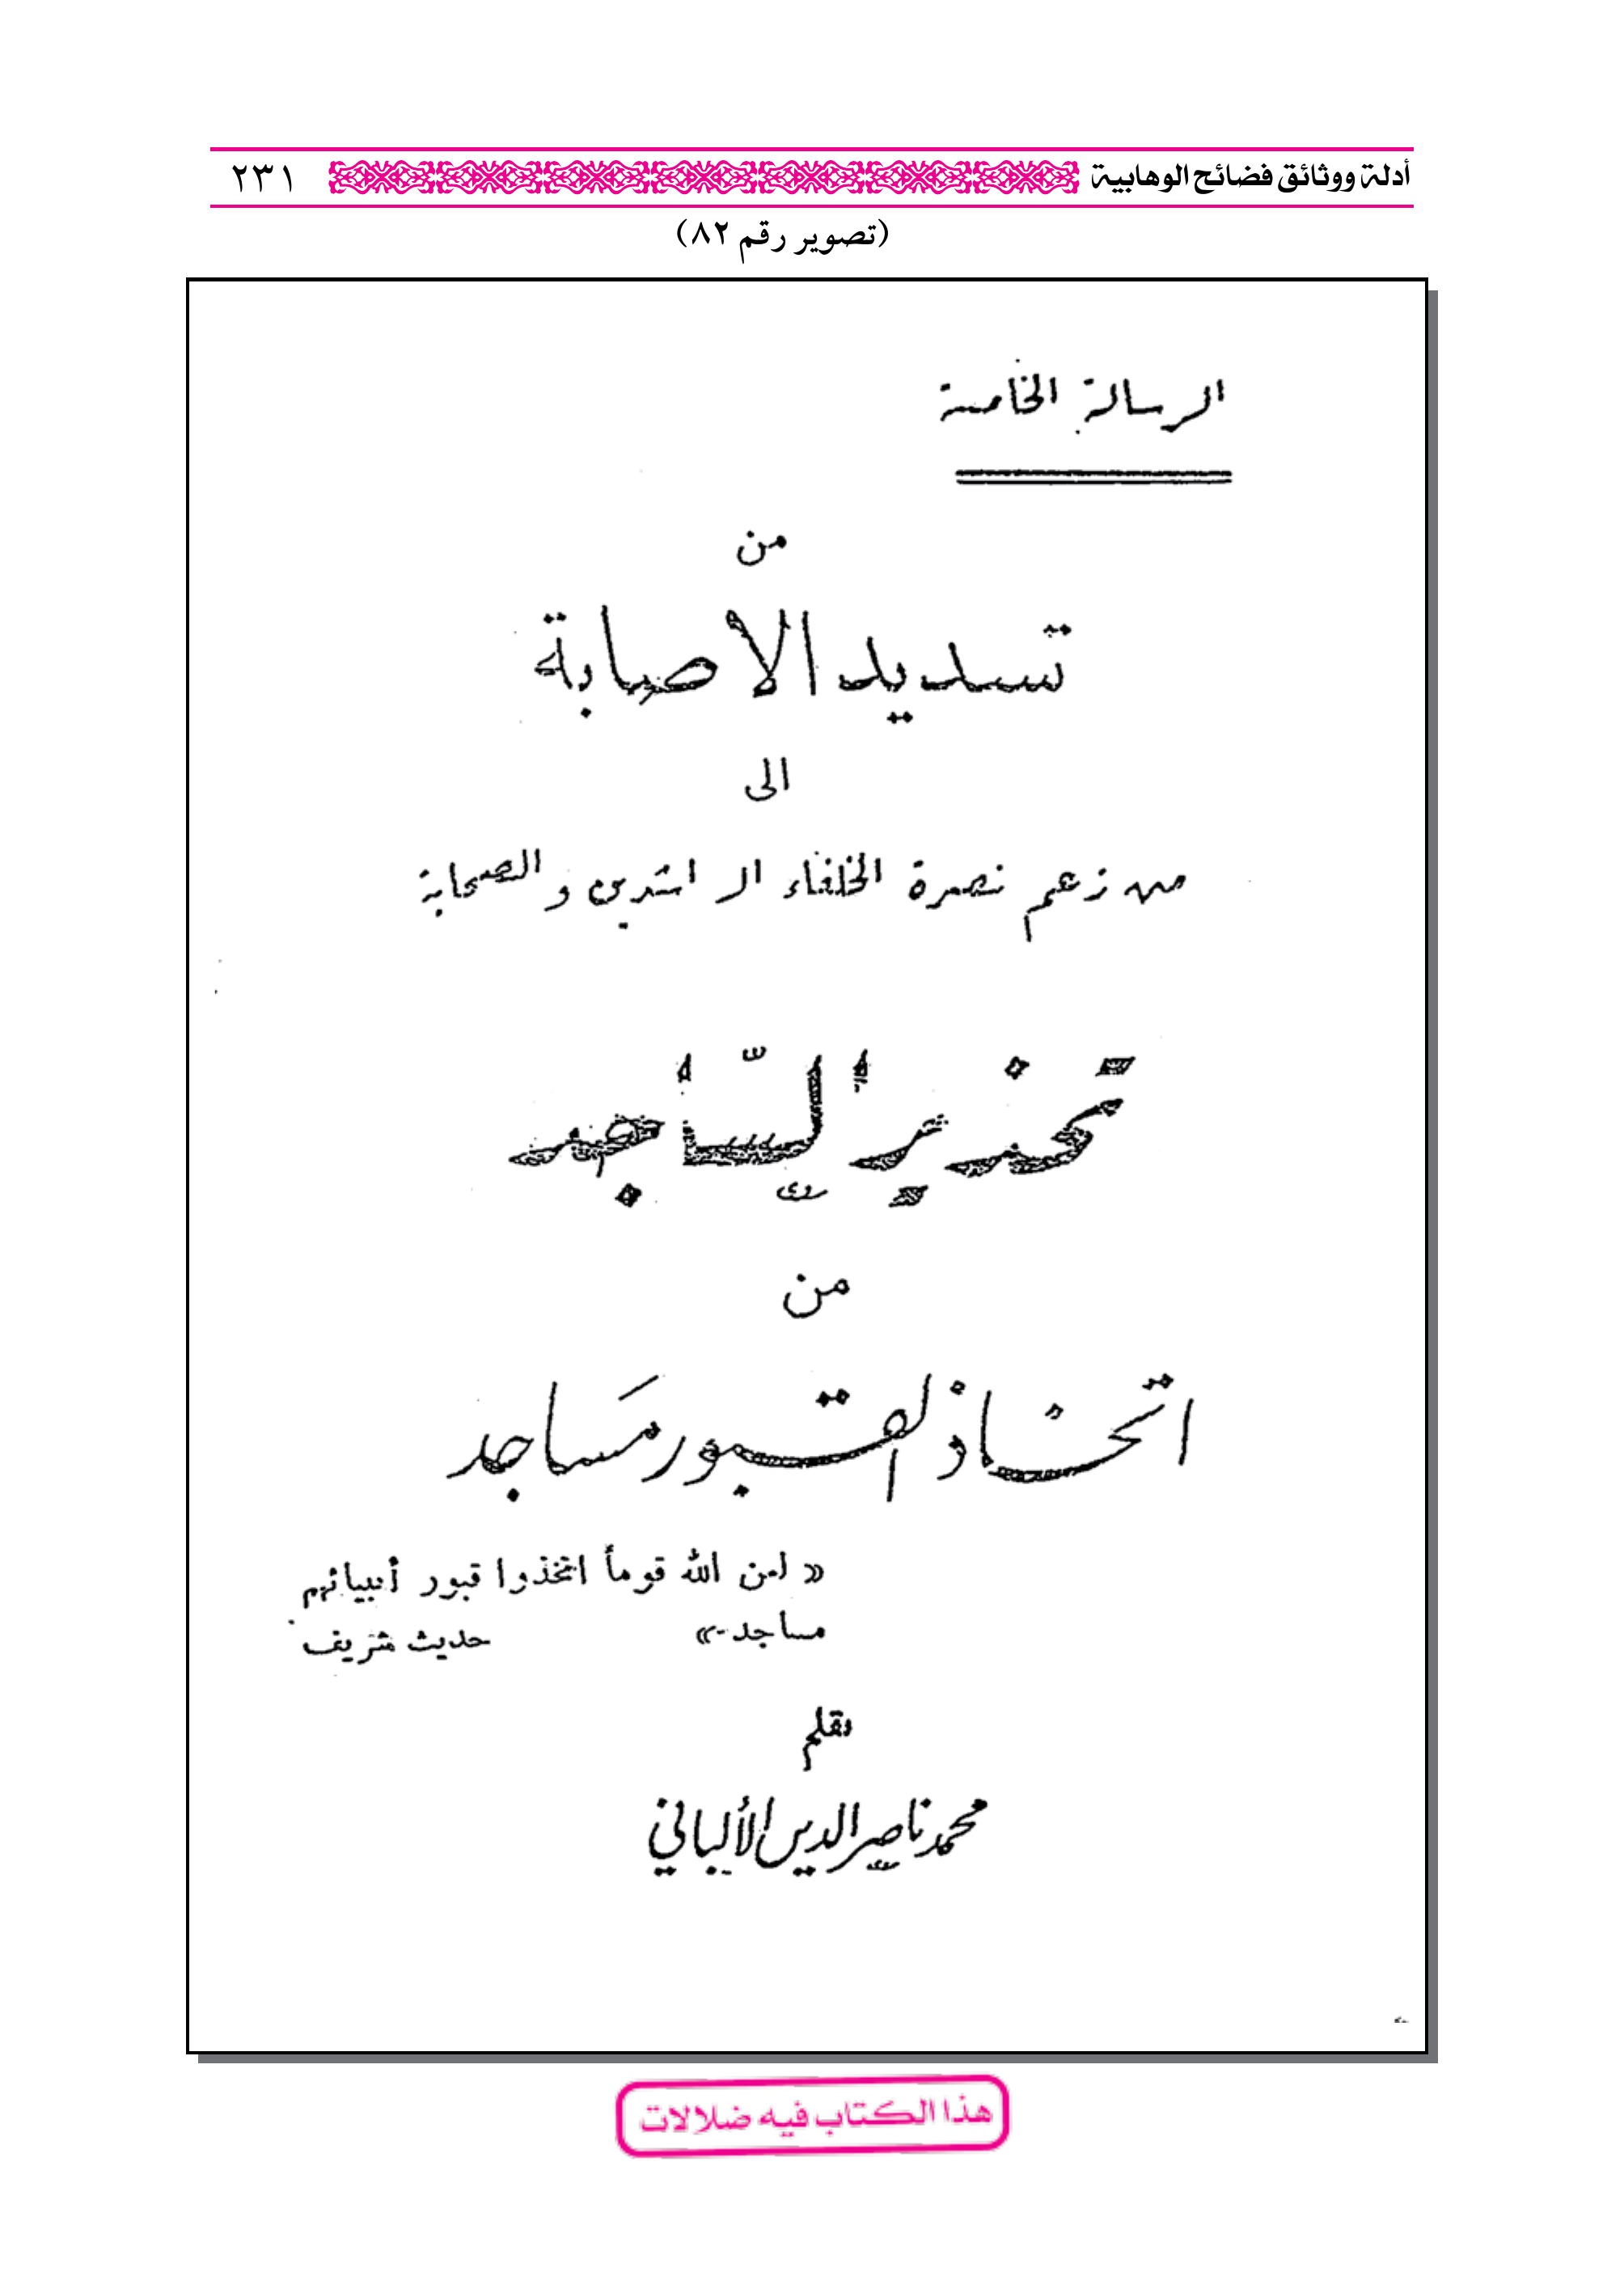 أدلة ووثائق فضائح الوهابية ٢٣١
(تصوير رقم ٨٢)
الرسالة الخامسة
من
تسديد الاصابة
الى
من زعم نصرة الخلفاء الراشدين والصحابة
تحذير السّاجد
من
اتخاذ القبور مَساجد
« لعن الله قوماً اتخذوا قبور أنبيائهم
مساجد » حديث شريف
بقلم
محمد ناصر الدين الألباني
هذا الكتاب فيه ضلالات